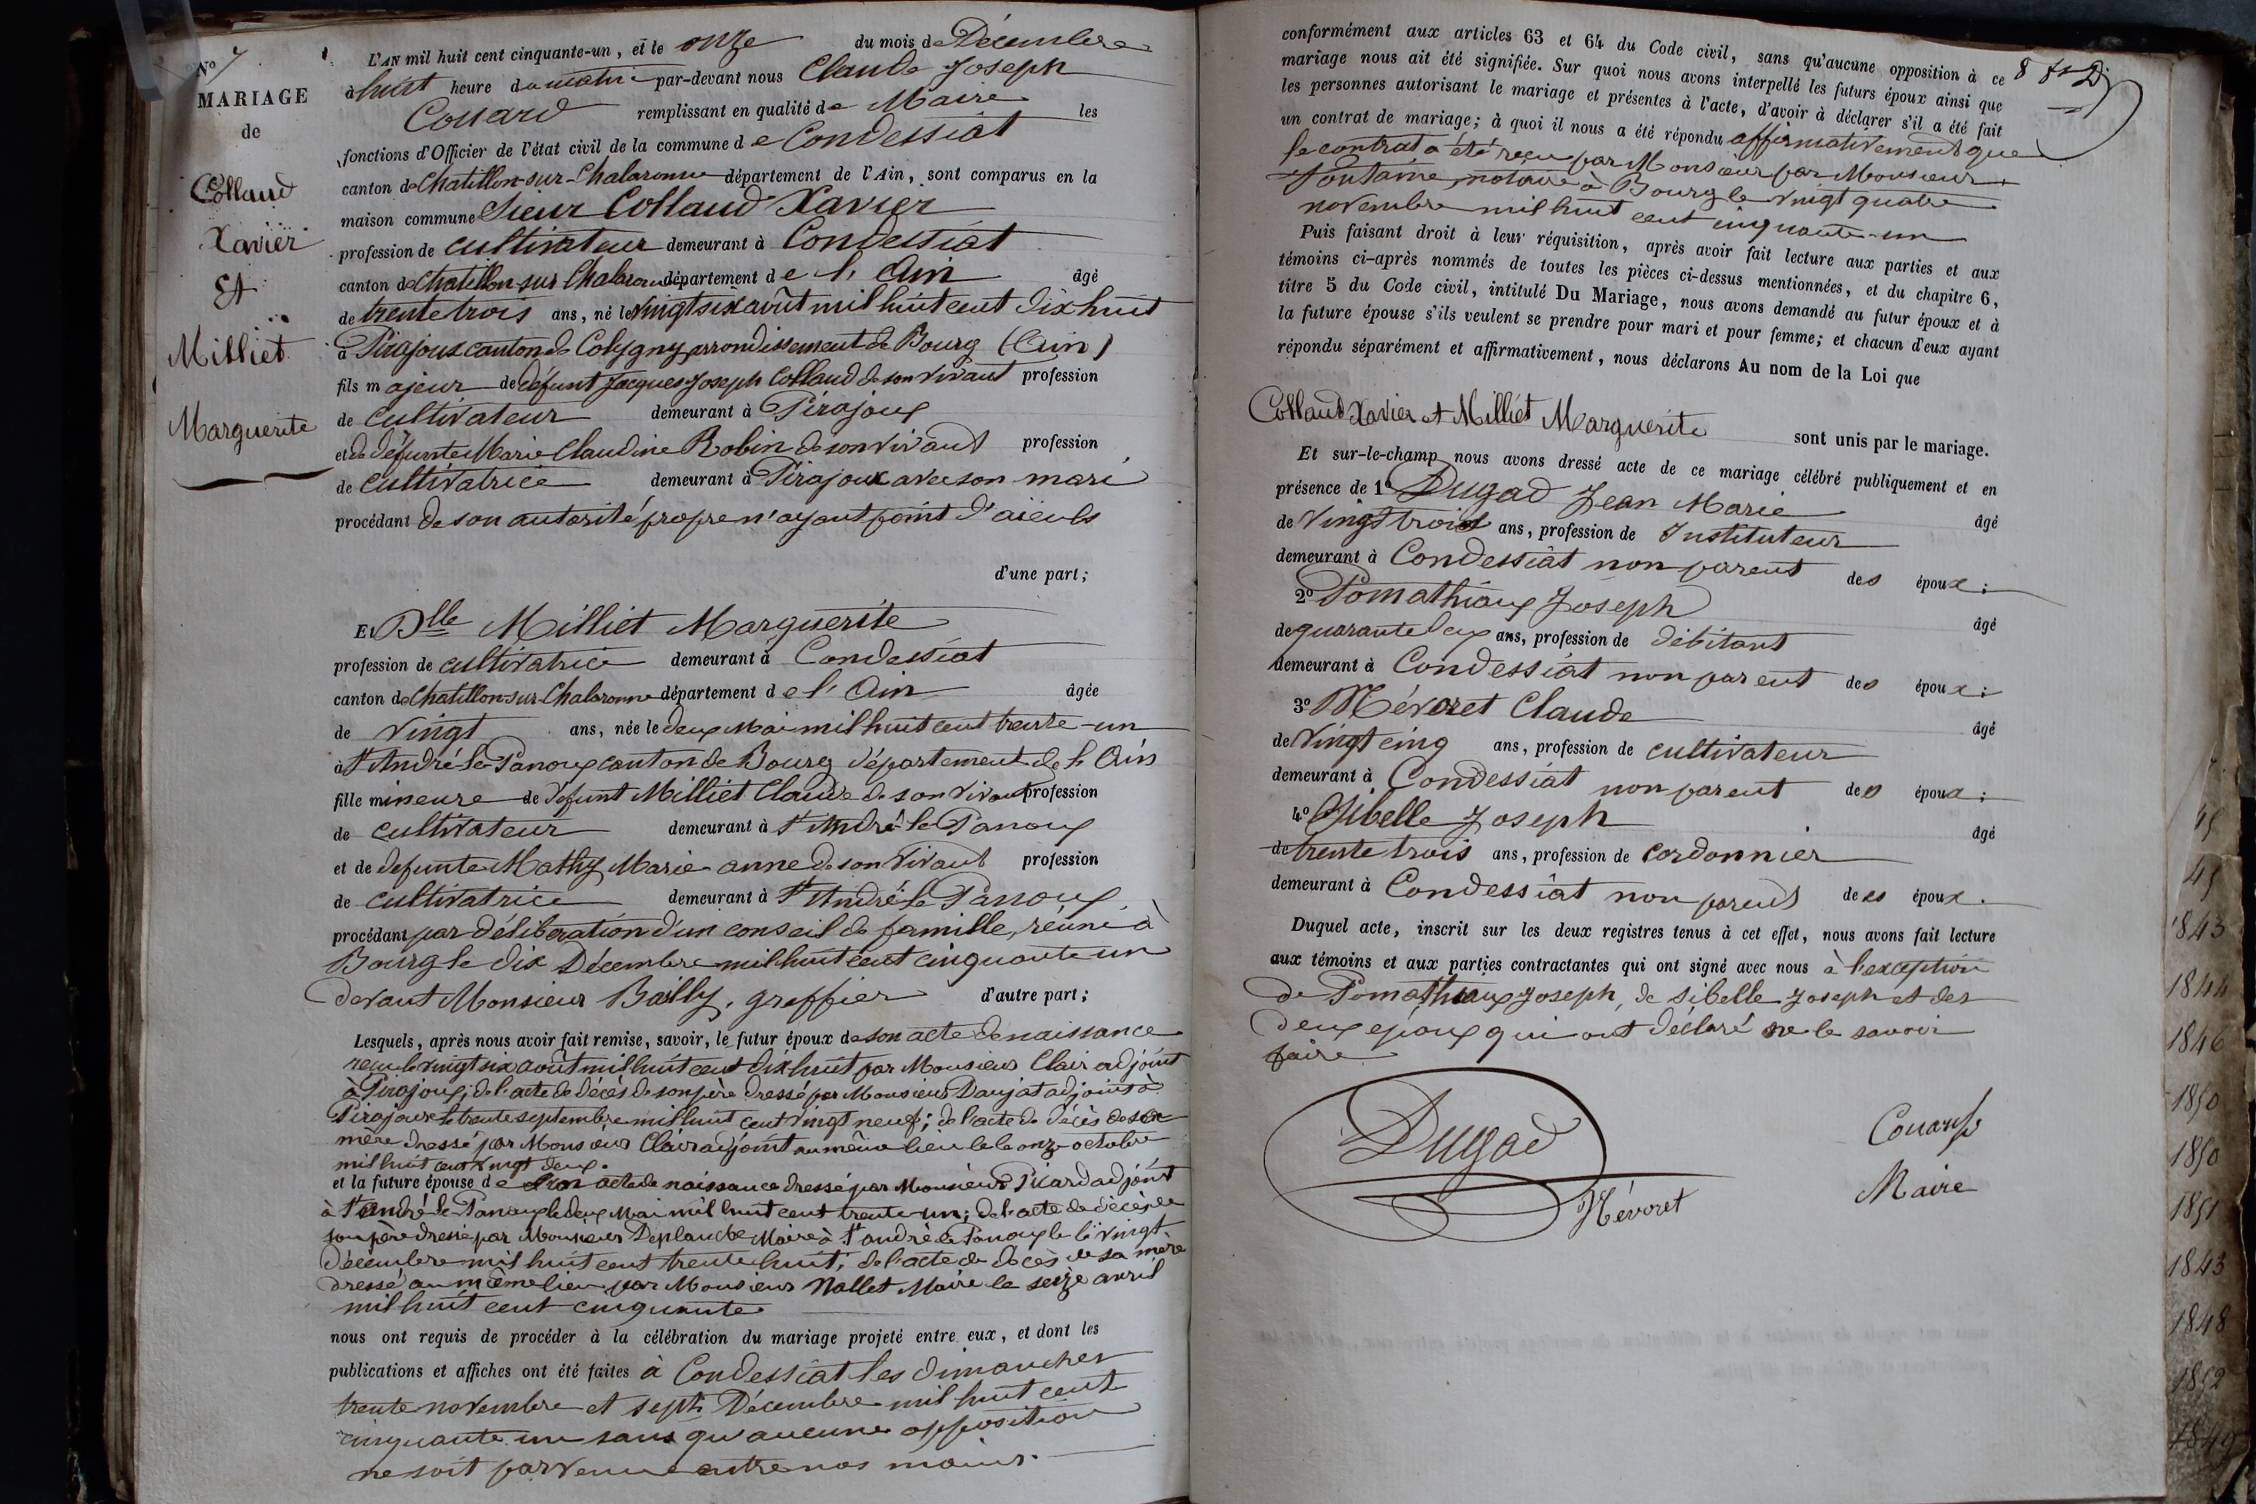 No 7
MARIAGE
de
Collaud
Xavier
Et
Milliet
Marguerite
L'AN mil huit cent cinquante-un, et le onze du mois de Décembre
à huit heure du matin par-devant nous Claude Joseph
Couard remplissant en qualité de Maire les
fonctions d'Officier de l'état civil de la commune de Condessiat
canton de Chatillon-sur-Chalaronne département de l'Ain, sont comparus en la
maison commune Sieur Collaud Xavier
profession de cultivateur demeurant à Condessiat
canton de Chatillon-sur Chalaronne département de l'Ain âgé
de trente trois ans, né le vingt six août mil huit cent dix huit
à Pirajoux canton de Colygny arrondissement de Bourg (Ain)
fils majeur de défunt Jacques Joseph Collaud de son vivant profession
de cultivateur demeurant à Pirajoux
et de défunte Marie Claudine Robin de son vivant profession
de cultivatrice demeurant à Pirajoux avec son mari
procédant de son autorité propre n'ayant point d'aïeuls
d'une part;
Et Dlle Milliet Marguerite
profession de cultivatrice demeurant à Condessiat
canton de Chatillon-sur-Chalaronne département de l'Ain âgée
de vingt ans, née le deux Mai mil huit cent trente-un
à St André-le-Panoux canton de Bourg département de l'Ain
fille mineure de défunt Milliet Claude de son vivant profession
de cultivateur demeurant à St André le Panoux
et de defunte Mathy Marie anne de son vivant profession
de cultivatrice demeurant à St André le Panoux
procédant par délibération d'un conseil de famille, réuni à
Bourg le dix Décembre mil huit cent cinquante un
devant Monsieur Bailly, greffier d'autre part;
Lesquels, après nous avoir fait remise, savoir, le futur époux de son acte de naissance
reçu le vingt six août mil huit cent dix huit par Monsieur Clair adjoint
à Pirajoux; de l'acte de décès de son père dressé par Monsieur Daujat adjoint à
Pirajoux le trente septembre mil huit cent vingt neuf; de l'acte de décès de sa
mère dressé par Monsieur Clair adjoint au même lieu le le onze octobre
mil huit cent vingt deux.
et la future épouse de son acte de naissance dressé par Monsieur Picard adjoint
à St André le Panoux le deux Mai mil huit cent trente un; de l'acte de décès de
son père dressé par Monsieur Deplanche Maire à St andré le Panoux le vingt
décembre mil huit cent trente huit; de l'acte de décès de sa mère
dressé au même lieu par Monsieur Nallet Maire le seize avril
mil huit cent cinquante
nous ont requis de procéder à la célébration du mariage projeté entre eux, et dont les
publications et affiches ont été faites à Condessiat les dimanches
trente novembre et sept Décembre mil huit cent
cinquante un sans qu'aucune opposition
ne soit parvenue entre nos mains.
conformément aux articles 63 et 64 du Code civil, sans qu'aucune opposition à ce
mariage nous ait été signifiée. Sur quoi nous avons interpellé les futurs époux ainsi que
les personnes autorisant le mariage et présentes à l'acte, d'avoir à déclarer s'il a été fait
un contrat de mariage; à quoi il nous a été répondu affirmativement que
le contrat a été reçu par Monsieur par Monsieur
Fontaine, notaire à Bourg le vingt quatre
novembre mil huit cent cinquante-un
Puis faisant droit à leur réquisition, après avoir fait lecture aux parties et aux
témoins ci-après nommés de toutes les pièces ci-dessus mentionnées, et du chapitre 6,
titre 5 du Code civil, intitulé Du Mariage, nous avons demandé au futur époux et à
la future épouse s'ils veulent se prendre pour mari et pour femme; et chacun d'eux ayant
répondu séparément et affirmativement, nous déclarons Au nom de la Loi que
Collaud Xavier et Milliet Marguerite sont unis par le mariage.
Et sur-le-champ nous avons dressé acte de ce mariage célébré publiquement et en
présence de 1º Dugad Jean Marie âgé
de vingt trois ans, profession de Instituteur
demeurant à Condessiat non parent des époux;
2º Pomathiaux Joseph âgé
de quarante deux ans, profession de débitant
demeurant à Condessiat non parent des époux;
3º Mévoret Claude âgé
de vingt cinq ans, profession de cultivateur
demeurant à Condessiat non parent des époux;
4º Sibelle Joseph âgé
de trente trois ans, profession de cordonnier
demeurant à Condessiat non parent des époux.
Duquel acte, inscrit sur les deux registres tenus à cet effet, nous avons fait lecture
aux témoins et aux parties contractantes qui ont signé avec nous à l'exception
de Pomathiaux Joseph, de Sibelle Joseph et des
deux époux qui ont déclaré ne le savoir
faire
Dugad
Mévoret
Couard
Maire
45
45
1843
1844
1846
1850
1850
1851
1843
1848
1852
1849